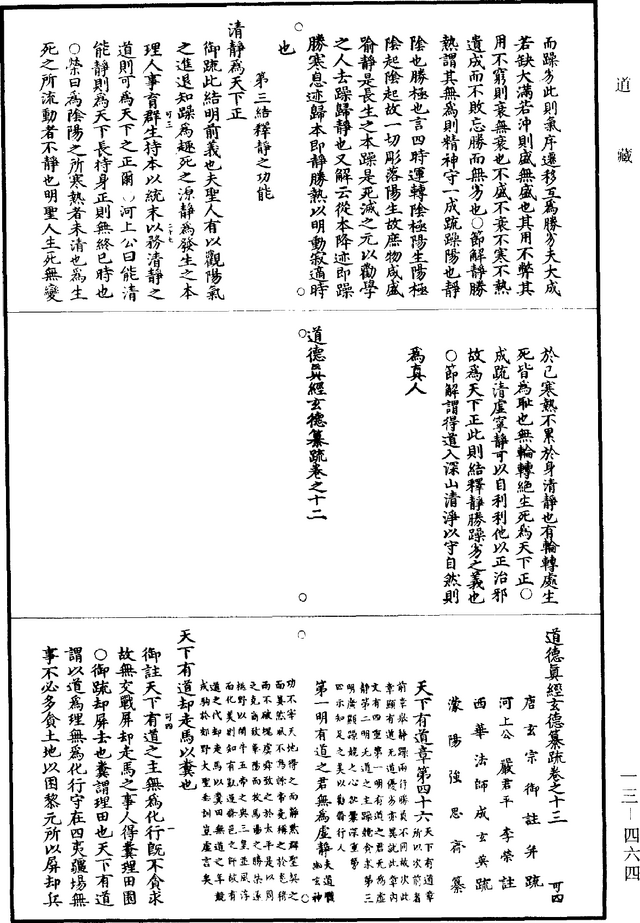 道藏
而躁劣此則氣序遷移互爲勝劣夫大成
若缺大滿若沖則盛無盛也其用不弊其
用不窮則衰無衰也不盛不衰不寒不熱
遺成而不敗忘勝而無劣也○節解靜勝
熱謂其無爲則精神守一成疏躁陽也靜
陰也勝極也言四時運轉陰極陽生陽極
陰起陰起故一切彫落陽生故庶物咸盛
喻靜是長生之本躁是死滅之元以勸學
之人去躁歸靜也又解云從本降迹即躁
勝寒息迹歸本即靜勝熱以明動寂適時
也
第三結釋靜之功能
清靜爲天下正
御疏此結明前義也夫聖人有以觀陽氣
之進退知躁爲趣死之源靜爲發生之本
理人事育群生持本以統末以務清靜之
道則可爲天下之正爾○河上公曰能清
能靜則爲天下長持身正則無終已時也
○榮曰爲陰陽之所寒熱者未清也爲生
死之所流動者不靜也明聖人生死無變
於己寒熱不累於身清靜也有輪轉處生
死皆爲恥也無輪轉絕生死爲天下正○
成疏清虛寧靜可以自利利他以正治邪
故爲天下正此則結釋靜勝躁劣之義也
○節解謂得道入深山清淨以守自然則
爲真人
道德眞經玄德纂疏卷之十二
道德眞經玄德纂疏卷之十三 可四
唐玄宗御註并疏
河上公 嚴君平 李榮註
西華法師成玄英疏
濛陽強思齊纂
天下有道章第四十六
第一明有道之君無爲虛靜
天下有道却走馬以糞也
御註天下有道之主無爲化行旣不貪求
故無交戰屏却走馬之事人得糞理田園
○御疏却屏去也糞謂理田也天下有道
謂以道爲理無爲化行守在四夷疆場無
事不必多貪土地以困黎元所以屏却兵
一三—四六四